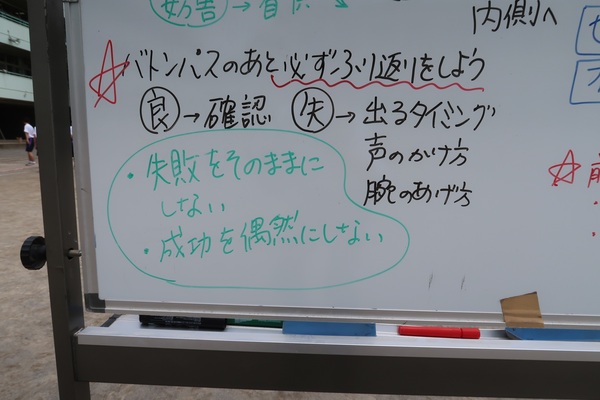 妨害→
内側へ
☆バトンパスのあと必ずふり返りをしよう
良→確認 失→出るタイミング
声のかけ方
腕のあげ方
・失敗をそのままに
しない
・成功を偶然にしない